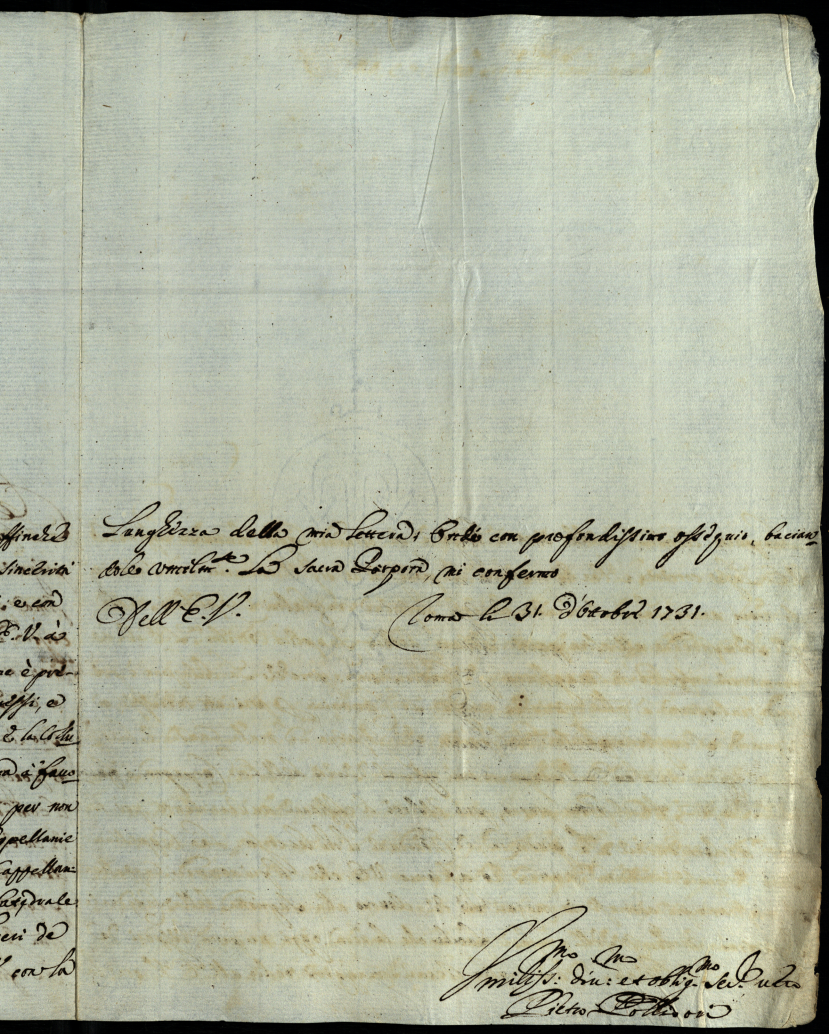 ffinche
sincerità
e con
E. V. à
ne è pre-
essi, e
e la Colu
a è favo
per non
appellanie
Cappellan-
Catedrale
eri de
con la
Lunghezza della mia lettera, con profondissimo ossequio, bacian-
dole umilm.te La Sacra Porpora, mi confermo
Dell' E. V. Roma li 31. d'Ottobre 1731.
Umiliss:mo div:mo et oblig.mo Ser.
Pietro Pollidori